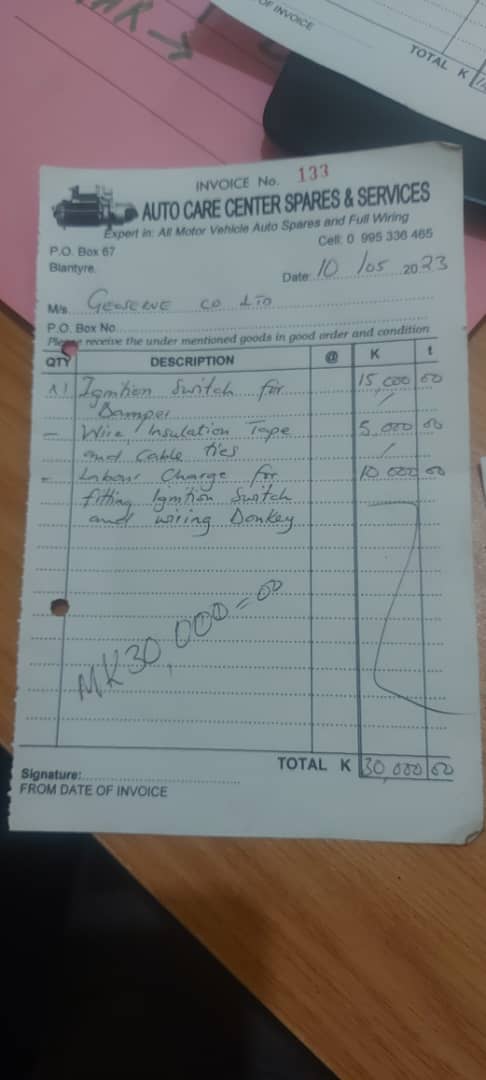 OF INVOICE
TOTAL K
INVOICE No. 133
AUTO CARE CENTER SPARES & SERVICES
Expert in: All Motor Vehicle Auto Spares and Full Wiring
P.O. Box 67
Cell: 0 995 336 465
Blantyre.
Date: 10 / 05 2023
M/s. GEOSERVE CO LTD
P.O. Box No
Please receive the under mentioned goods in good order and condition
QTY DESCRIPTION @ K t
x1 Ignition Switch for 15,000 00
Damper
- Wire, Insulation Tape 5,000 00
and Cable ties
- Labour Charge for 10 000 00
fitting Ignition Switch
and wiring Donkey
MK30,000=00
TOTAL K 30,000 00
Signature:
FROM DATE OF INVOICE